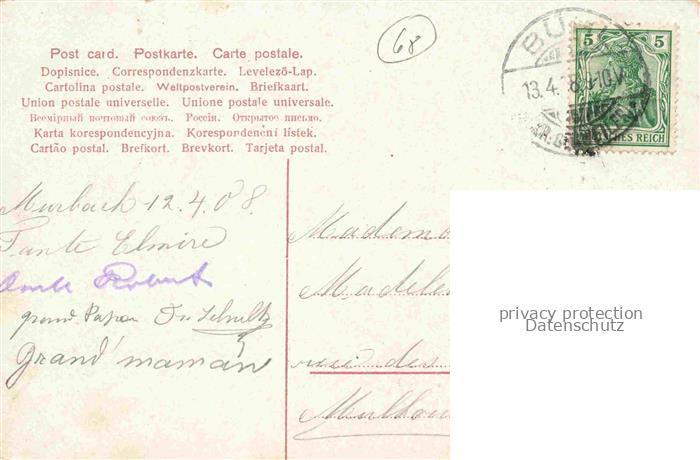 68
5 5
DEUTSCHES REICH
13.4.08 9-10V
Post card. Postkarte. Carte postale.
Dopisnice. Correspondenzkarte. Levelező-Lap.
Cartolina postale. Weltpostverein. Briefkaart.
Union postale universelle. Unione postale universale.
Всемірный почтовый союзъ. Россія. Открытое письмо.
Karta korespondencyjna. Korespondenční lístek.
Cartão postal. Brefkort. Brevkort. Tarjeta postal.
Murbach 12.4.08.
Tante Elmire
Robert
grand Papa Dr
Grand'maman
Madem
Madele
rue des
Mulhou
privacy protection
Datenschutz